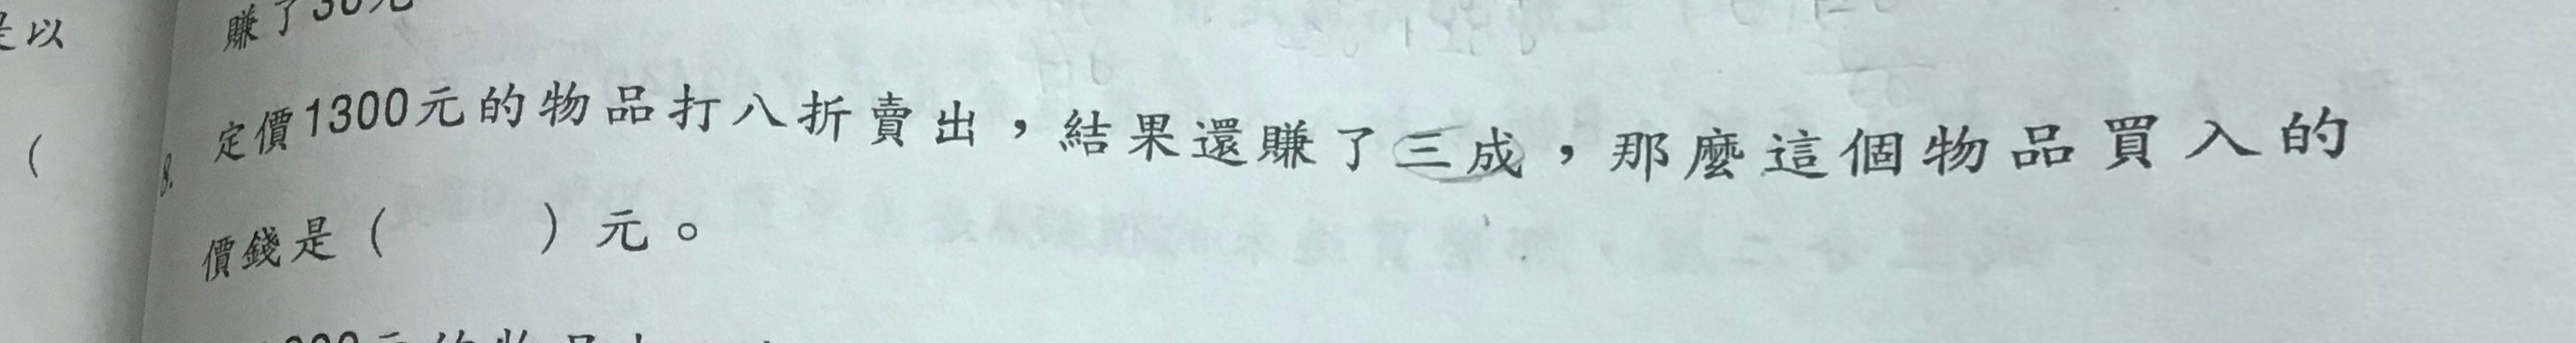 是以
賺了30元
(
8. 定價1300元的物品打八折賣出，結果還賺了三成，那麼這個物品買入的
價錢是（　　）元。